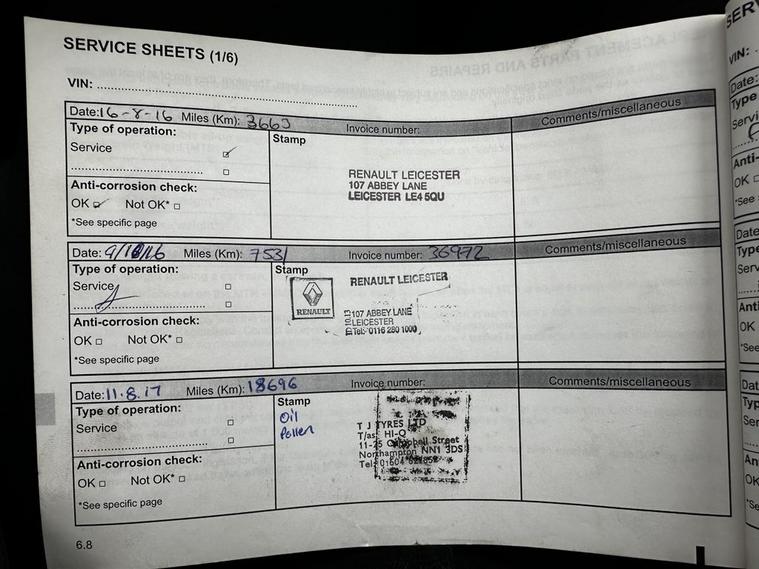 SERVICE SHEETS (1/6)
VIN:
Date: 16-8-16 Miles (Km): 3663 Invoice number: Comments/miscellaneous
Type of operation:
Service
Anti-corrosion check:
OK Not OK*
*See specific page
Stamp
RENAULT LEICESTER
107 ABBEY LANE
LEICESTER LE4 5QU
Date: 9/10/16 Miles (Km): 7531 Invoice number: 36972 Comments/miscellaneous
Type of operation:
Service
Anti-corrosion check:
OK Not OK*
*See specific page
Stamp
RENAULT
RENAULT LEICESTER
107 ABBEY LANE
LEICESTER
Tel: 0116 280 1000
Date: 11.8.17 Miles (Km): 18696 Invoice number: Comments/miscellaneous
Type of operation:
Service
Anti-corrosion check:
OK Not OK*
*See specific page
Stamp
Oil
Pollen
T J TYRES LTD
T/as HI-Q
11-25 Campbell Street
Northampton NN1 3DS
Tel: 01604
6.8